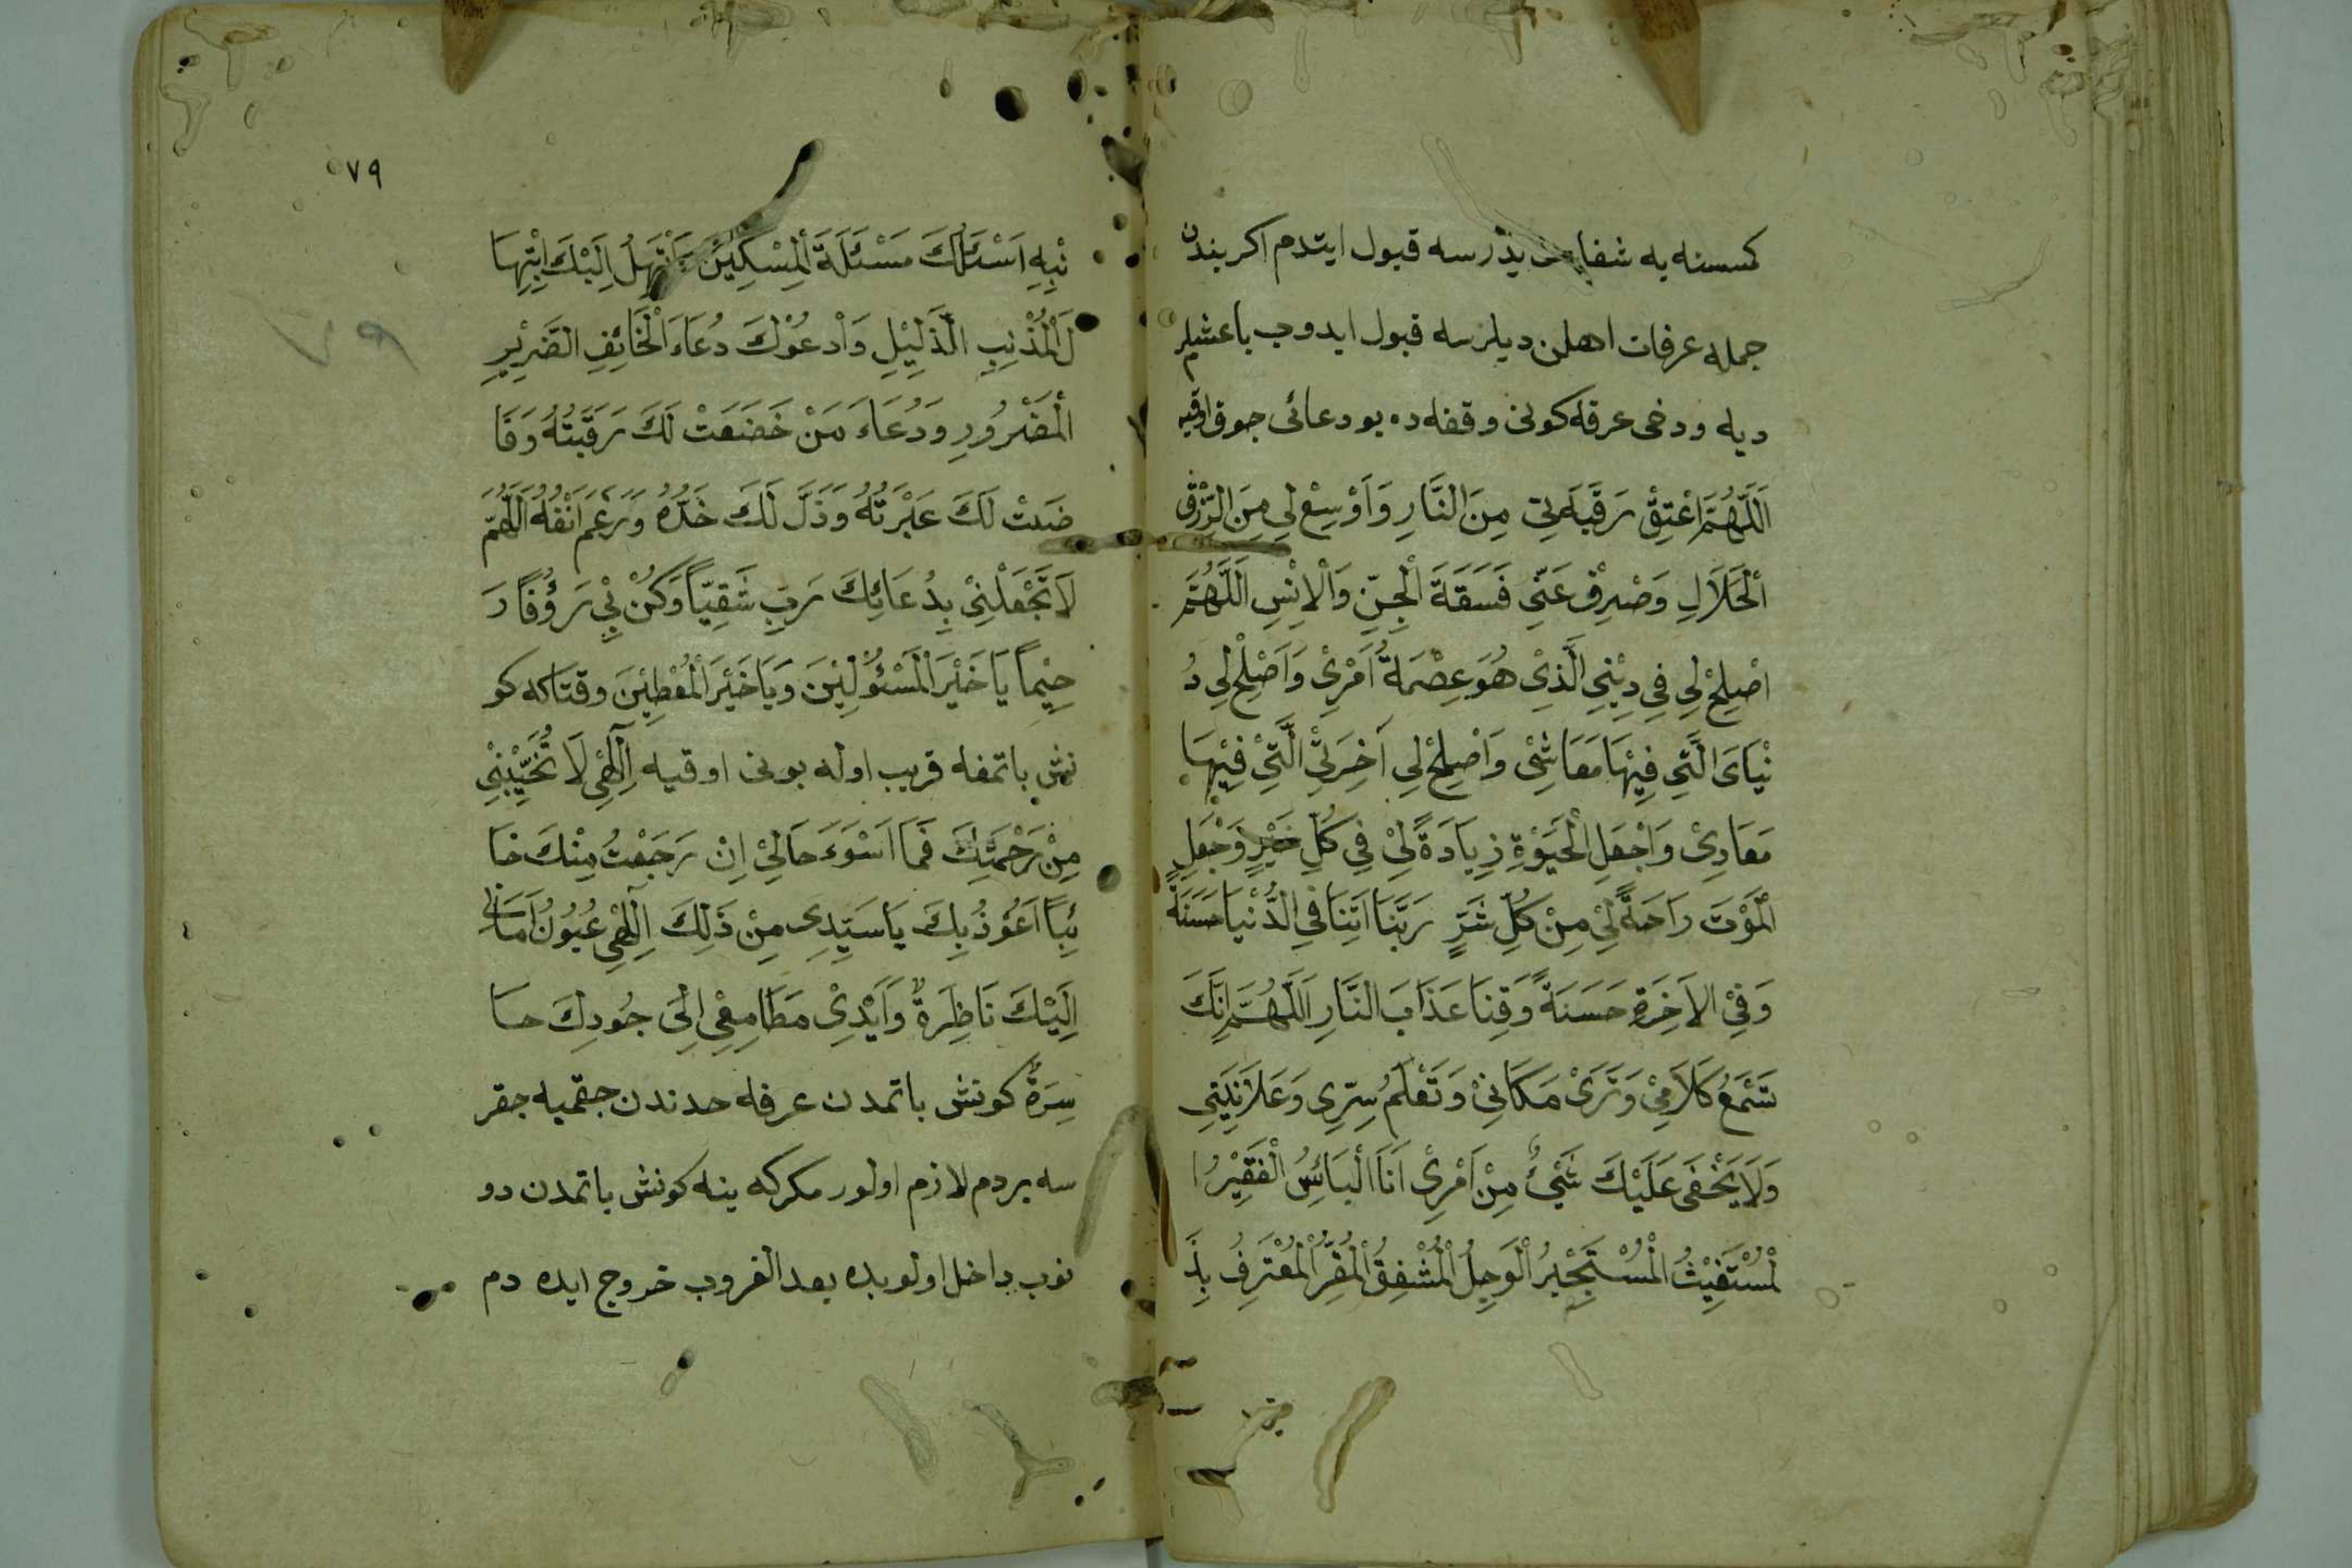 كمسنه يه شفاعت يدرسه قبول ايتدم اكر بندن
جمله عرفات اهلن ديلرسه قبول ايدوب باغشلر
ديه ودخى عرفه كونى وقفه ده بو دعائى جوق اوقيه
اَللّٰهُمَّ اعْتِقْ رَقَبَتِى مِنَ النَّارِ وَاَوْسِعْ لِى مِنَ الرِّزْقِ
اْلحَلَالِ وَصْرِفْ عَنّىِ فَسَقَةَ اْلجِنِّ وَاْلاِنْسِ اَللّٰهُمَّ
اصْلِحْ لِى فِى دِيْنِىِ الَّذِىْ هُوَ عِصْمَةُ اَمْرِىْ وَاَصْلِحْ لِى دُ
نْيَاىَ الَّتِى فِيْهَا مَعَاشِىْ وَاَصْلِحْ لِى اٰخِرَتِىْ الَّتِىْ فِيْهَا
مَعَادِىْ وَاجْعَلِ اْلحَيٰوةِ زِيَادَةً لِىْ فِى كُلِّ خَيْرٍ وَجْعَلِ
اْلمَوْتَ رَاحَةً لِىْ مِنْ كُلِّ شَرٍّ رَبَّنَا اٰتِنَا فِى الدُّنْيَا حَسَنَةً
وَفِىْ الاٰخِرَةِ حَسَنَةً وَقِنَا عَذَابَ النَّارِ اَللّٰهُمَّ اِنَّكَ
تَسْمَعُ كَلَامِىْ وَتَرَىْ مَكَانِىْ وَتَعْلَمُ سِرِّى وَعَلَانِيَتِى
وَلَا يَخْفَى عَلَيْكَ شَىْءٌ مِنْ اَمْرِىْ اَنَا اْلبَائِسُ الْفَقِيْرُ ا
لْمُسْتَغِيْثُ الْمُسْتَجْيِرُ اْلوَجِلُ الْمُشْفِقُ الْمُقِرُّ الْمُعْتَرِفُ بِذَ
٧٩
نْبِهِ اَسْئَلُكَ مَسْئَلَةَ اْلمِسْكِيْنَ وَاَبْتَهِلُ اِلَيْكَ اِبْتِهَا
لَ اْلمُذْنِبِ الذَّلِيْلِ وَاَدْعُوْكَ دُعَاءَ اْلخَائِفِ الضَّرِيْرِ
الْمَضْرُورِ وَدُعَاءَ مَنْ خَضَعَتْ لَكَ رَقَبَتُهُ وَفَا
ضَتْ لَكَ عَبْرَتُهُ وَذَلَّ لَكَ خَدُّهُ وَرَغَمَ اَنْفُهُ اَللّٰهُمَّ
لَا تَجْعَلْنِىْ بِدُعَائِكَ رَبِّ شَقِيّاً وَكُنْ بِى رَؤُفًا رَ
حِيْماً يَا خَيْرَ الْمَسْئُوْلِيْنَ وَيَا خَيْرَ الْمُعْطِيْنَ وقتاكه كو
نش باتمغه قريب اوله بونى اوقيه اِلٰهِى لَا تُخَيِّبْنِىْ
مِنْ رَحْمَتِكَ فَمَا اَسْوَءَ حَالِىْ اِنْ رَجَعْتُ مِنْكَ خَا
ئِباً اَعُوْذُ بِكَ يَا سَيِّدِى مِنْ ذٰلِكَ اِلٰهِى عُيُوْنُ اَمَالِى
اِلَيْكَ نَاظِرَةٌ وَاَيْدِىْ مَطَامِعِى اِلَى جُودِكَ حا
سِرَةٌ كونش باتمدن عرفه حدندن جقميه جقر
سه بر دم لازم اولور مكر كه ينه كونش باتمدن دو
نوب داخل اولوبده بعد الغروب خروج ايده دم